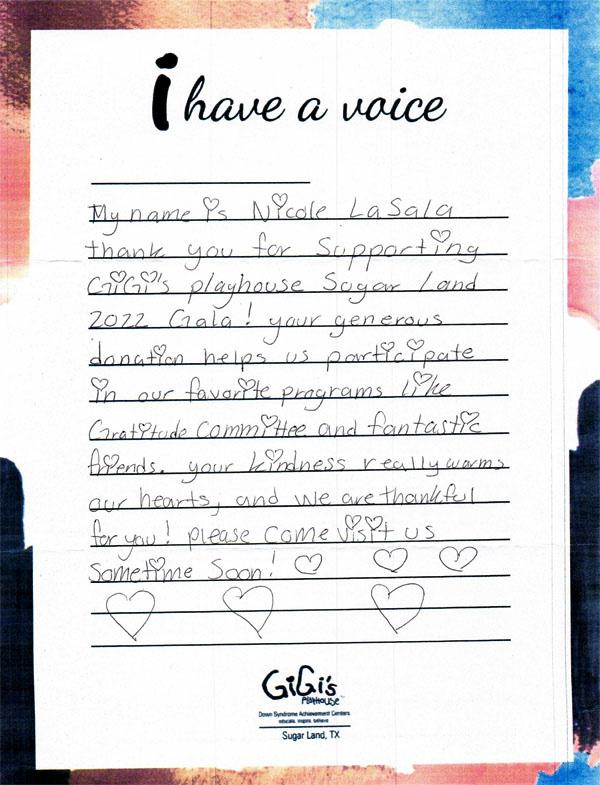 i have a voice
My name is Nicole LaSala
thank you for Supporting
GiGi's playhouse Sugar Land
2022 Gala! your generous
donation helps us participate
in our favorite programs like
Gratitude Committee and fantastic
friends. your kindness really warms
our hearts, and we are thankful
for you! please come visit us
Sometime Soon!
GiGi's
PLAYHOUSE
Down Syndrome Achievement Centers
educate. inspire. believe
Sugar Land, TX